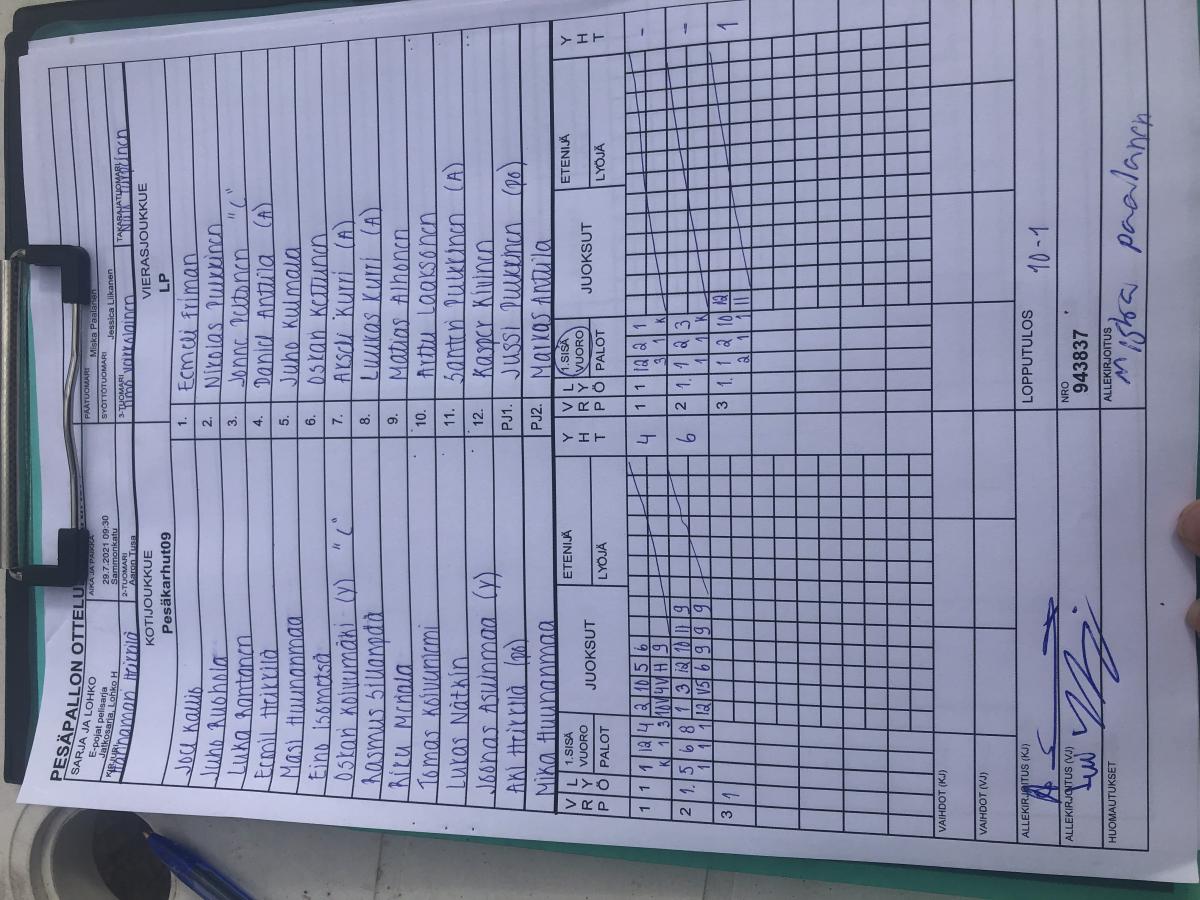 PESÄPALLON OTTELU
SARJA JA LOHKO
E-pojat pelisarja
Jatkosarja, Lohko H
AIKA JA PAIKKA
29.7.2021 09:30
Sammonkatu
PÄÄTUOMARI
Miska Paalanen
SYÖTTÖTUOMARI
Jessica Liikanen
KIRJURI
Heikkilä
2-TUOMARI
Aaron Tusa
3-TUOMARI
TAKARAJATUOMARI
KOTIJOUKKUE
Pesäkarhut09
VIERASJOUKKUE
LP
Joel Kallio 1. Eemeli Friman
Juho Ruohola 2. Nikolas Pulkkinen
Luka Rantanen 3. Jonne Peltonen "C"
Eemil Heikkilä 4. Daniel Anttila (A)
Masi Huunanmaa 5. Juho Kulmala
Eino Isometsä 6. Oskari Kettunen
Oskari Koivumäki (V) "C" 7. Akseli Kurri (A)
Rasmus Sillanpää 8. Luukas Kurri (A)
Riku Mikola 9. Matias Alhonen
Tomas Koivuniemi 10. Attu Laaksonen
Lukas Nätkin 11. Santeri Pulkkinen (A)
Joonas Asuinmaa (V) 12. Kasper Kiilinen
Aki Heikkilä (po) PJ1. Jussi Pulkkinen (po)
Mika Huunanmaa PJ2. Markas Anttila
V R P L Y Ö 1.SISÄ VUORO PALOT JUOKSUT ETENIJÄ LYÖJÄ Y H T V R P L Y Ö 1.SISÄ VUORO PALOT JUOKSUT ETENIJÄ LYÖJÄ Y H T
1 1 1 12 4 2 10 5 6 4 1 1 12 2 1 -
K 1 3 10V 4V 11 9 3 1 K
2 1. 5 6 8 1 3 12 10 11 9 6 2 1. 1 2 3 -
1 1 1 12 V5 6 9 9 9 1 1 K
3 1 3 1. 1 2 10 12 1
2 1 1 11
VAIHDOT (KJ)
VAIHDOT (VJ)
ALLEKIRJOITUS (KJ)
LOPPUTULOS 10-1
ALLEKIRJOITUS (VJ)
NRO
943837
HUOMAUTUKSET
ALLEKIRJOITUS
Miska Paalanen